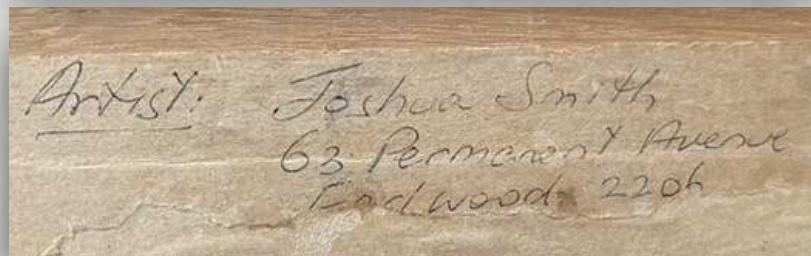 Artist: Joshua Smith
63 Permanent Avenue
Earlwood 2206